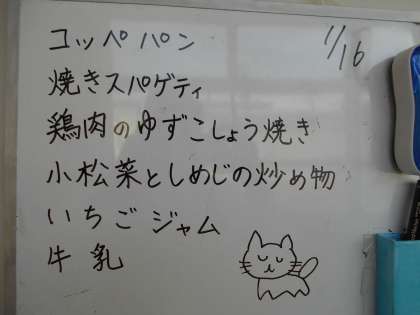 11/16
コッペパン
焼きスパゲティ
鶏肉のゆずこしょう焼き
小松菜としめじの炒め物
いちごジャム
牛乳